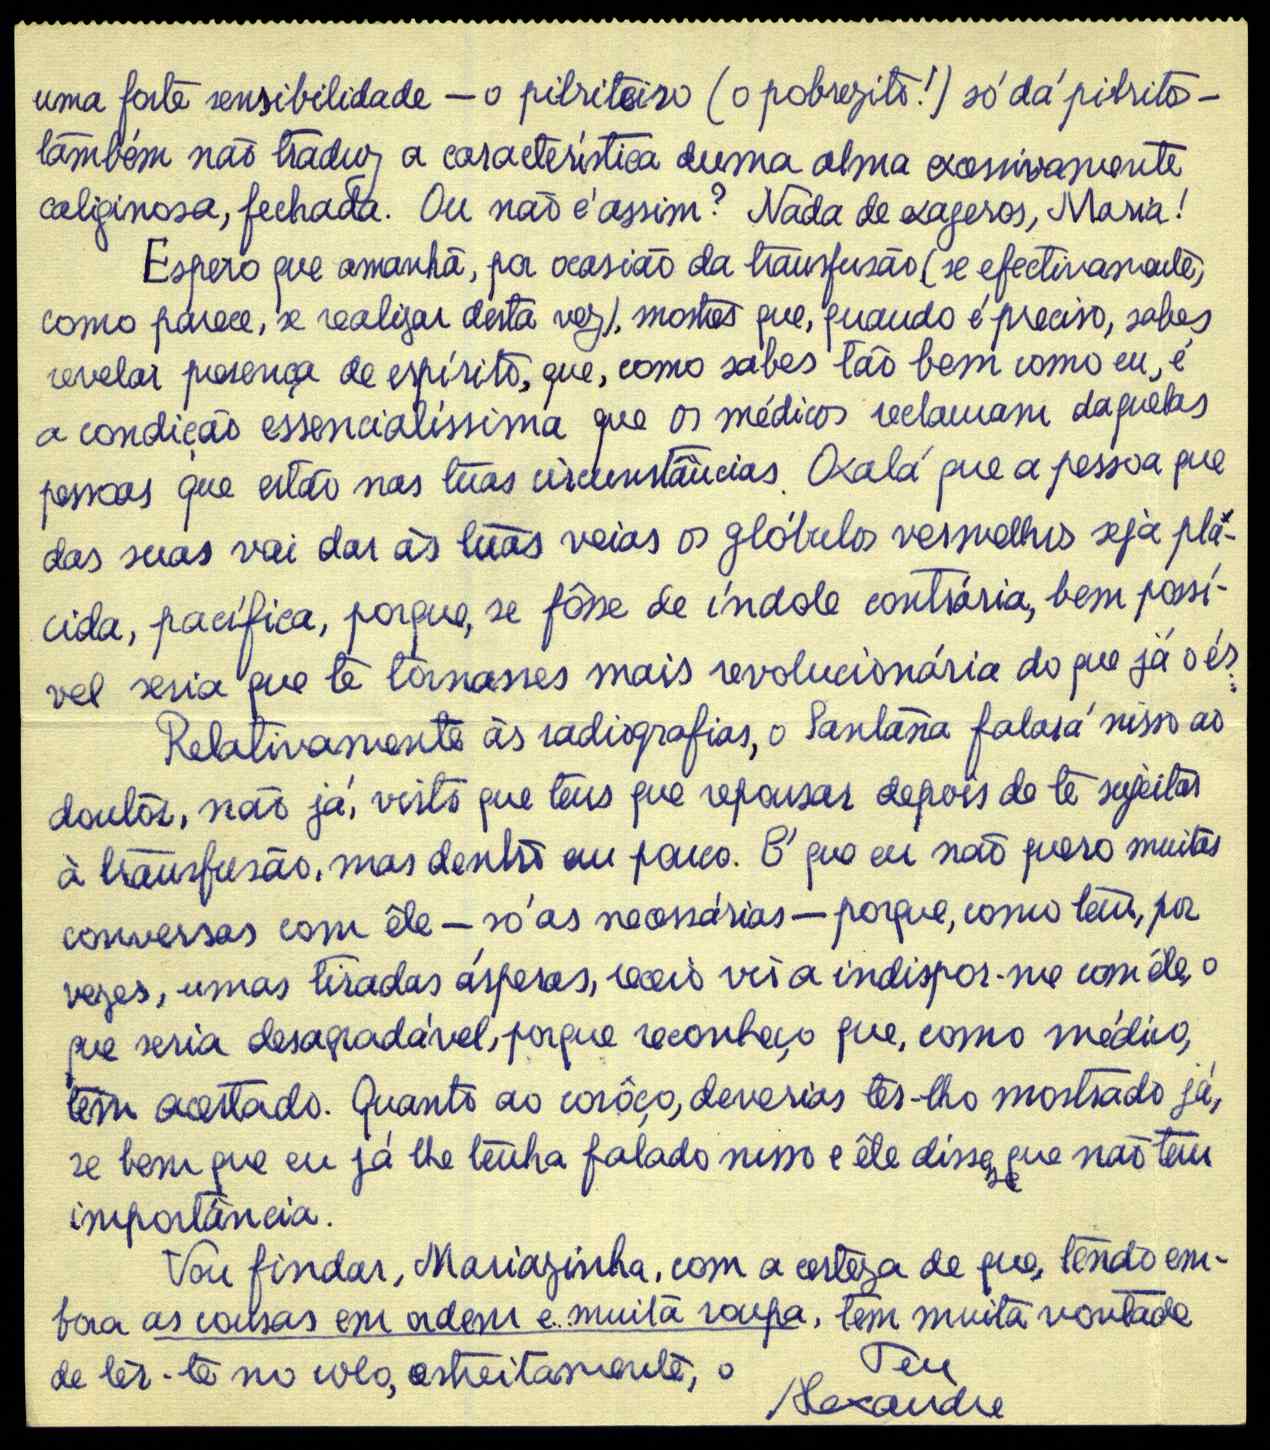 uma forte sensibilidade — o pilriteiro (o pobrezito!) só dá pilrito —
também não traduz a característica duma alma excessivamente
caliginosa, fechada. Ou não é assim? Nada de exageros, Maria!
Espero que amanhã, por ocasião da transfusão (se efectivamente,
como parece, se realizar desta vez), mostres que, quando é preciso, sabes
revelar presença de espírito, que, como sabes tão bem como eu, é
a condição essencialíssima que os médicos reclamam daquelas
pessoas que estão nas tuas circunstâncias. Oxalá que a pessoa que
das suas vai dar às tuas veias os glóbulos vermelhos seja plá-
cida, pacífica, porque, se fôsse de índole contrária, bem possí-
vel seria que te tornasses mais revolucionária do que já o és...
Relativamente às radiografias, o Santana falará nisso ao
doutor, não já, visto que tens que repousar depois de te sujeitar
à transfusão, mas dentro em pouco. É que eu não quero muitas
conversas com êle — só as necessárias — porque, como tem, por
vezes, umas tiradas ásperas, receio vir a indispor-me com êle, o
que seria desagradável, porque reconheço que, como médico,
tem acertado. Quanto ao corôço, deverias ter-lho mostrado já,
se bem que eu já lhe tenha falado nisso e êle dissesse que não tem
importância.
Vou findar, Mariazinha, com a certeza de que, tendo em-
bora as cousas em ordem e muita roupa, tem muita vontade
de ter-te no colo, estreitamente, o Teu
Alexandre